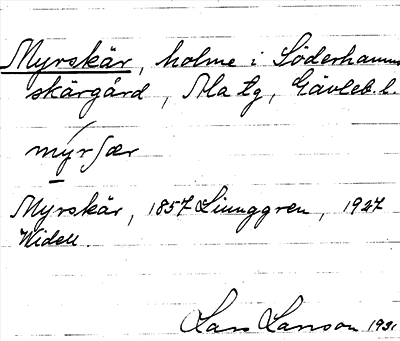 Myrskär, holme i Söderhamns
skärgård, Ala tg, Gävleb. l.
mýrʃær
Myrskär, 1857 Ljunggren, 1927
Widell.
Lars Larsson 1931